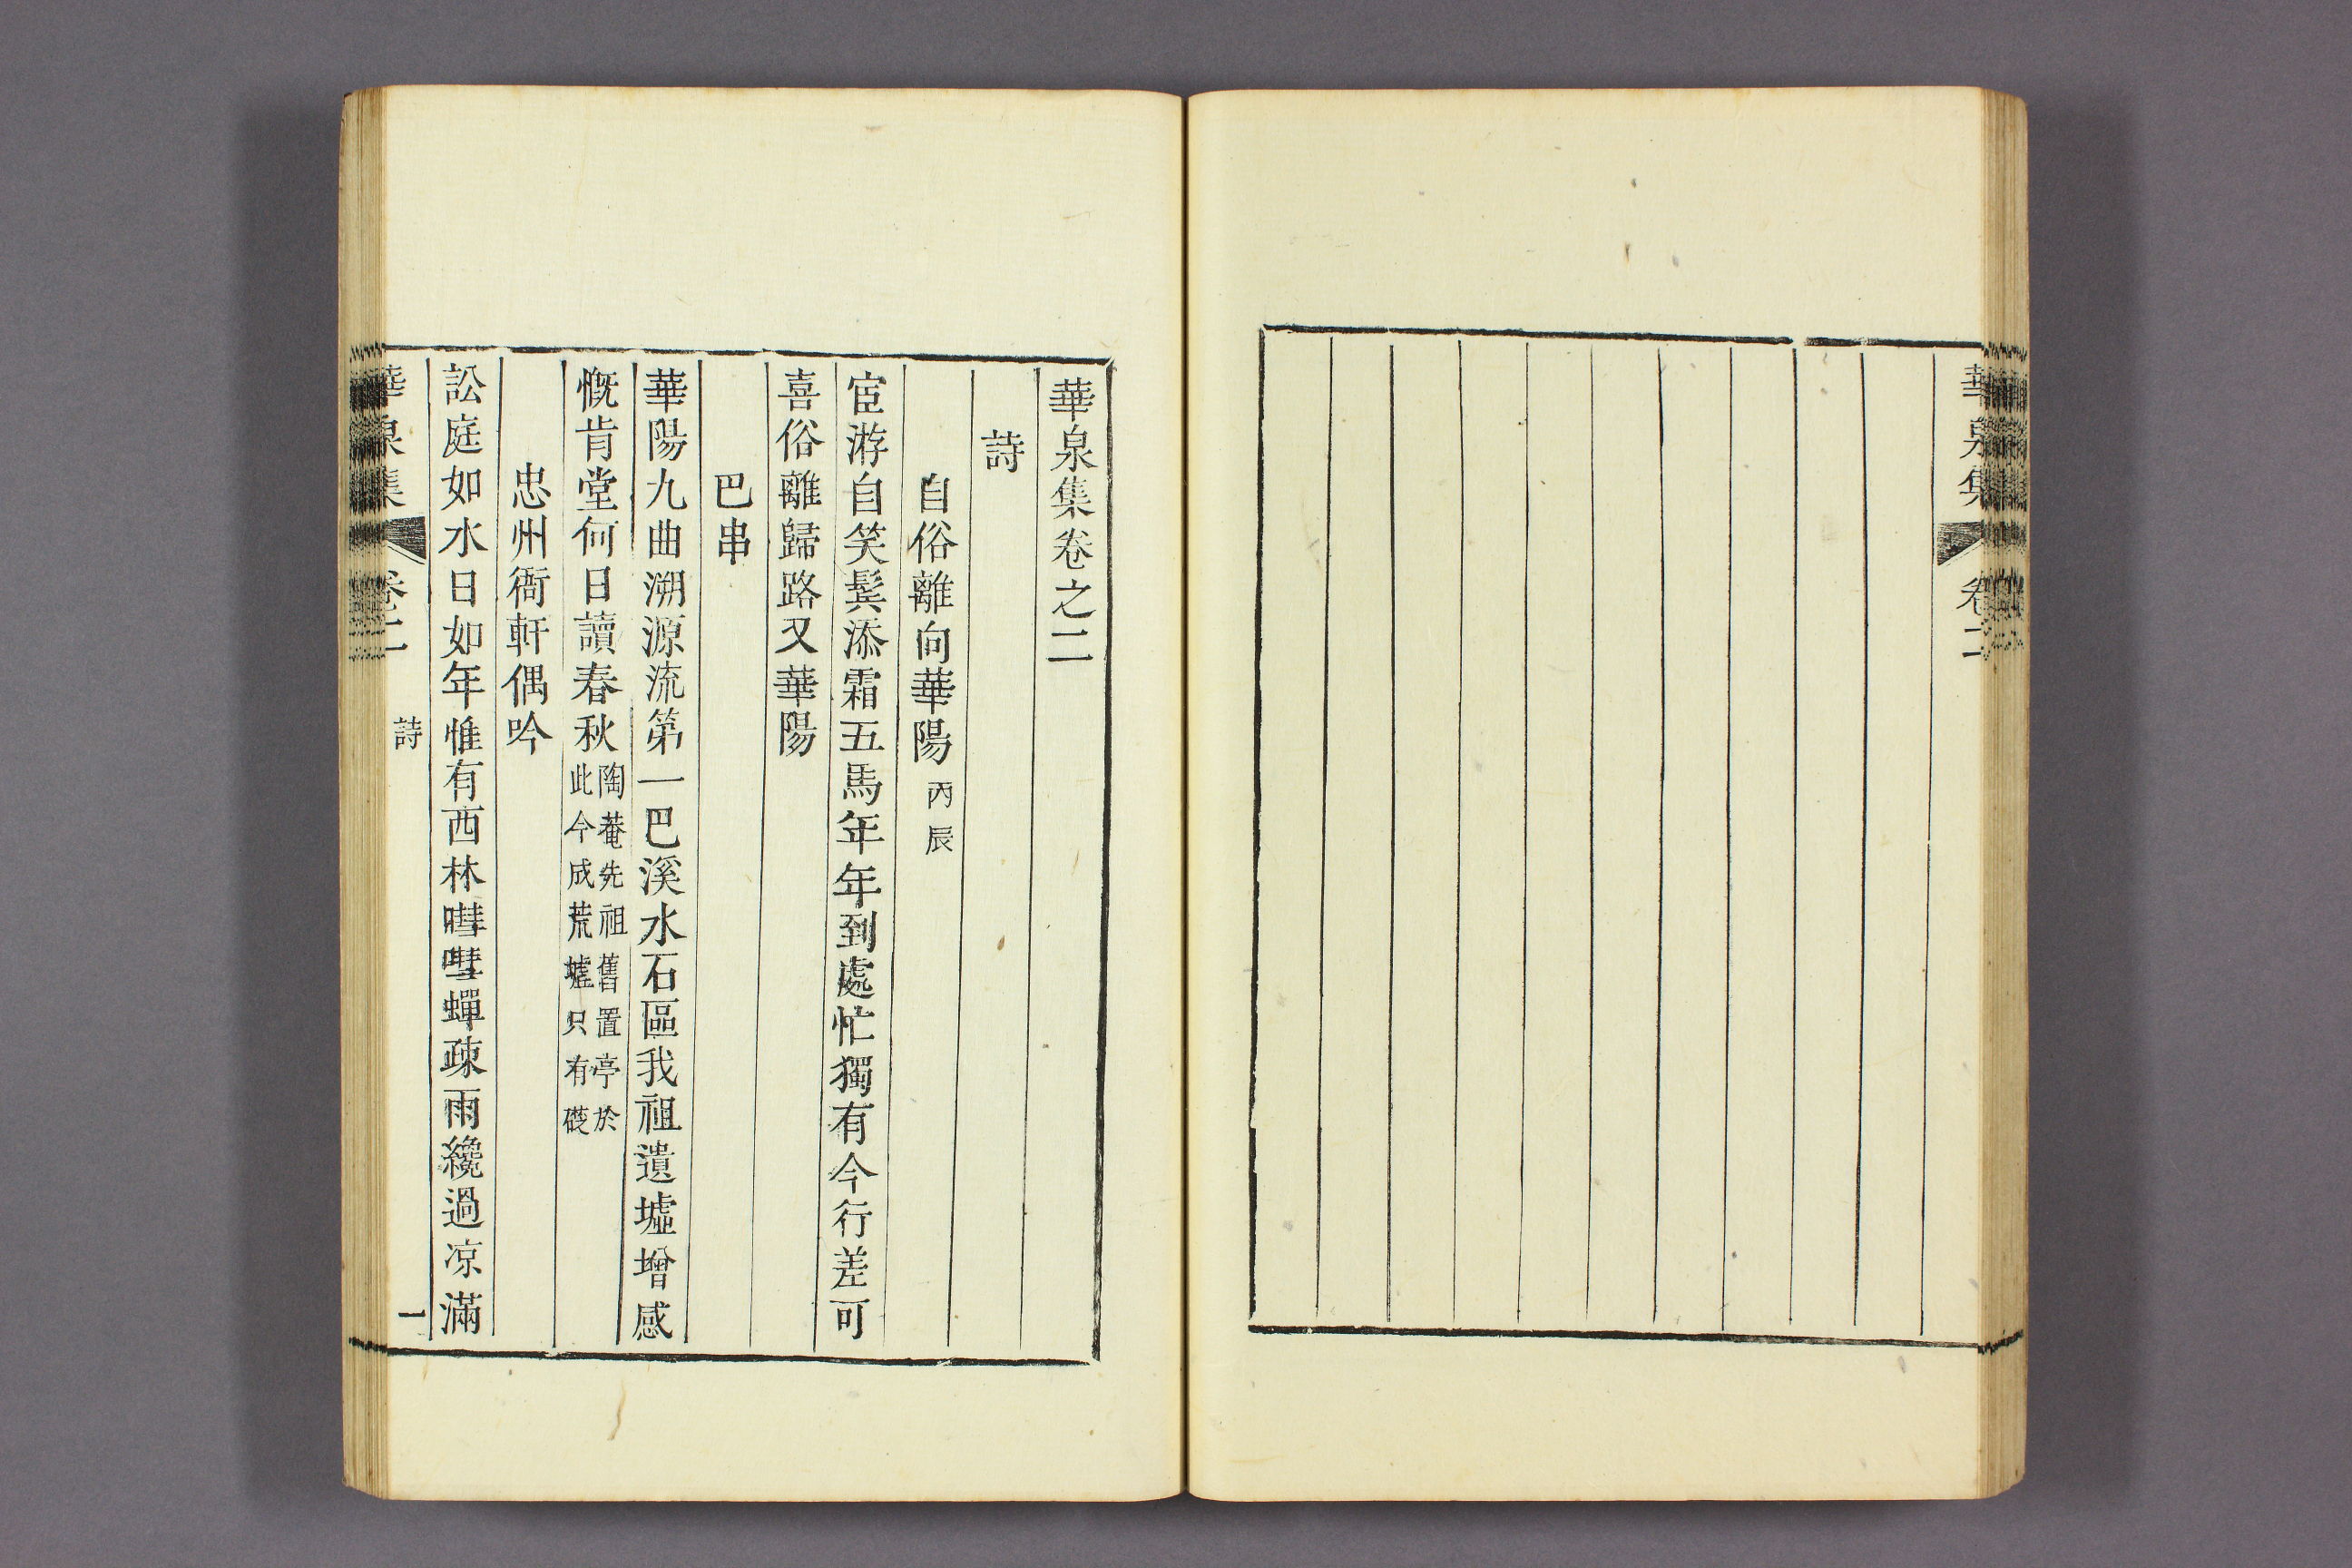 華泉集
卷二
華泉集卷之二
詩
自俗離向華陽 丙辰
宦游自笑鬂添霜五馬年年到處忙獨有今行差可
喜俗離歸路又華陽
巴串
華陽九曲溯源流第一巴溪水石區我祖遺墟增感
慨肯堂何日讀春秋
陶菴先祖舊置亭於
此今成荒墟只有礎
忠州衙軒偶吟
訟庭如水日如年惟有西林嘒嘒蟬疎雨纔過凉滿
華泉集
卷二
詩
一